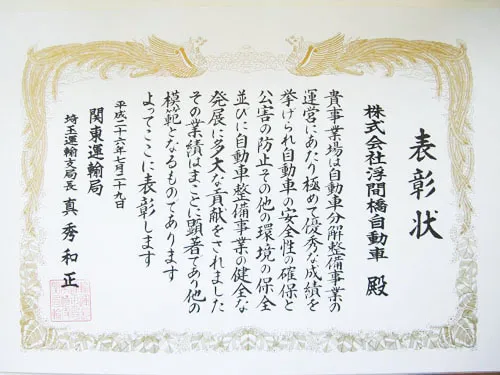 表彰状
株式会社浮間橋自動車 殿
貴事業場は自動車分解整備事業の
運営にあたり極めて優秀な成績を
挙げられ自動車の安全性の確保と
公害の防止その他の環境の保全
並びに自動車整備事業の健全な
発展に多大な貢献をされました
その業績はまことに顕著であり他の
模範となるものであります
よってここに表彰します
平成二十六年七月二十九日
関東運輸局
埼玉運輸支局長 真秀和正